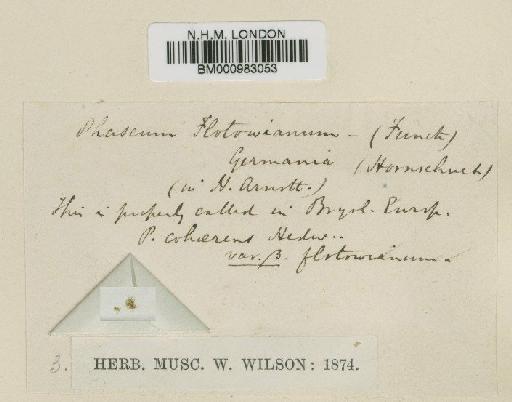 N.H.M. LONDON
BM000983053
Phascum Flotowianum - (Funck)
Germania (Hornschuch)
(in H. Arnott.)
This is properly called in Bryol. Europ.
P. cohærens Hedw..
var. β. flotowianum.
3. HERB. MUSC. W. WILSON: 1874.